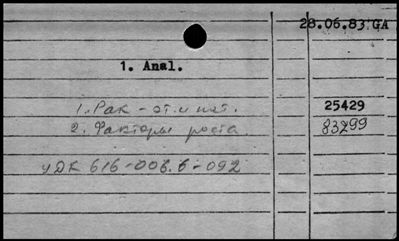 28.06.83 GA
1. Anal.
1. Рак - эт. и пат. 25429
2. Факторы роста. 83299
УДК 616-006.6-092